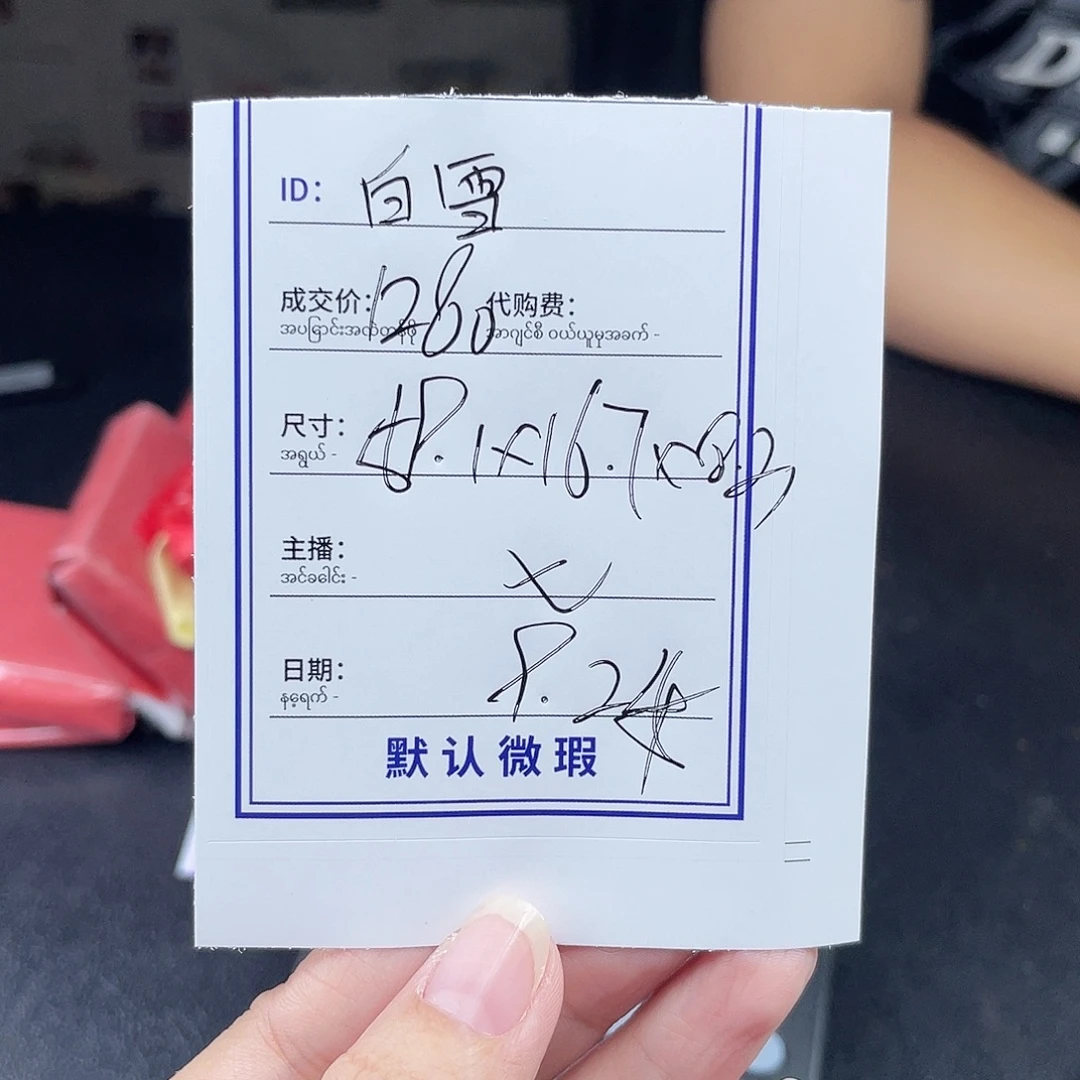 ID: 白雪
成交价: 1280 代购费:
အပြောင်းအလဲတန်ဖိုး အာဂျင်စီ ဝယ်ယူမှုအခက် -
尺寸: 48.1x16.7x8.3
အရွယ် -
主播: 七
အင်ခခေါင်း -
日期: 8.24
နေ့ရက် -
默认微瑕
D